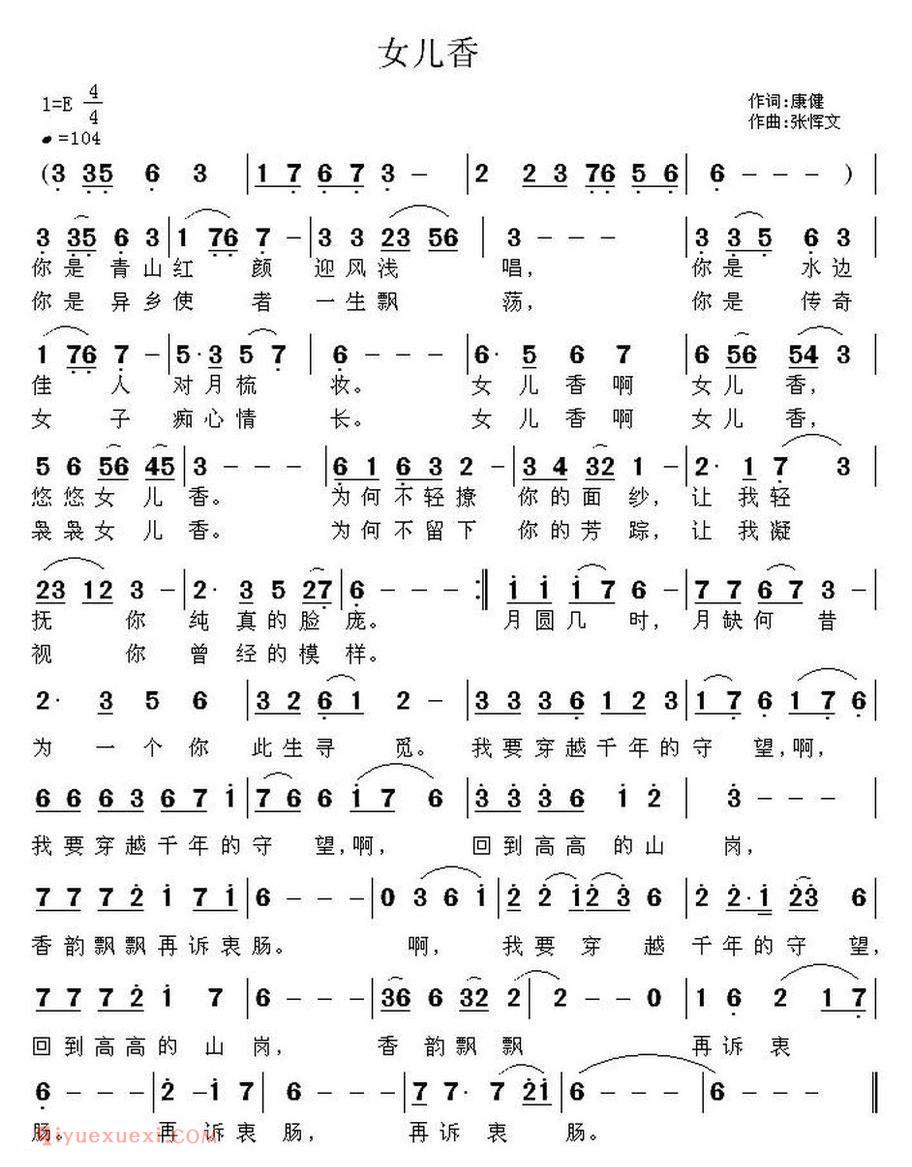 女儿香
1=E 4/4
作词:康健
♩=104
作曲:张恽文
(3 35 6 3 | 1 7 6 7 3 - | 2 2 3 76 5 6 | 6 - - - ) |
3 35 6 3 | 1 76 7 - | 3 3 23 56 | 3 - - - | 3 3 5 6 3
你是青山红颜迎风浅唱, 你是水边
你是异乡使者一生飘荡, 你是传奇
1 76 7 - | 5· 3 5 7 | 6 - - - | 6· 5 6 7 | 6 56 54 3 |
佳人对月梳妆。女儿香啊女儿香,
女子痴心情长。女儿香啊女儿香,
5 6 56 45 | 3 - - - | 6 1 6 3 2 - | 3 4 32 1 - | 2· 1 7 3
悠悠女儿香。为何不轻撩你的面纱,让我轻
袅袅女儿香。为何不留下你的芳踪,让我凝
23 12 3 - | 2· 3 5 27 | 6 - - - :‖ i i i 7 6 - | 7 7 6 7 3 - |
抚你纯真的脸庞。月圆几时,月缺何昔
视你曾经的模样。
2· 3 5 6 | 3 2 6 1 2 - | 3 3 3 6 1 2 3 | 1 7 6 1 7 6 |
为一个你此生寻觅。我要穿越千年的守望,啊,
6 6 6 3 6 7 i | 7 6 6 i 7 6 | 3 3 3 6 i 2 | 3 - - - |
我要穿越千年的守望,啊, 回到高高的山岗,
7 7 7 2 i 7 i | 6 - - - | 0 3 6 i | 2 2 i 2 3 6 | 2 2· i 23 6 |
香韵飘飘再诉衷肠。啊,我要穿越千年的守望,
7 7 7 2 i 7 | 6 - - - | 36 6 32 2 | 2 - - 0 | 1 6 2 1 7 |
回到高高的山岗, 香韵飘飘 再诉衷
6 - - - | 2 - i 7 | 6 - - - | 7 7· 7 2i | 6 - - - | 6 - - - ‖
肠。再诉衷肠, 再诉衷肠。
qiyuexuexi.com(奇乐学习)